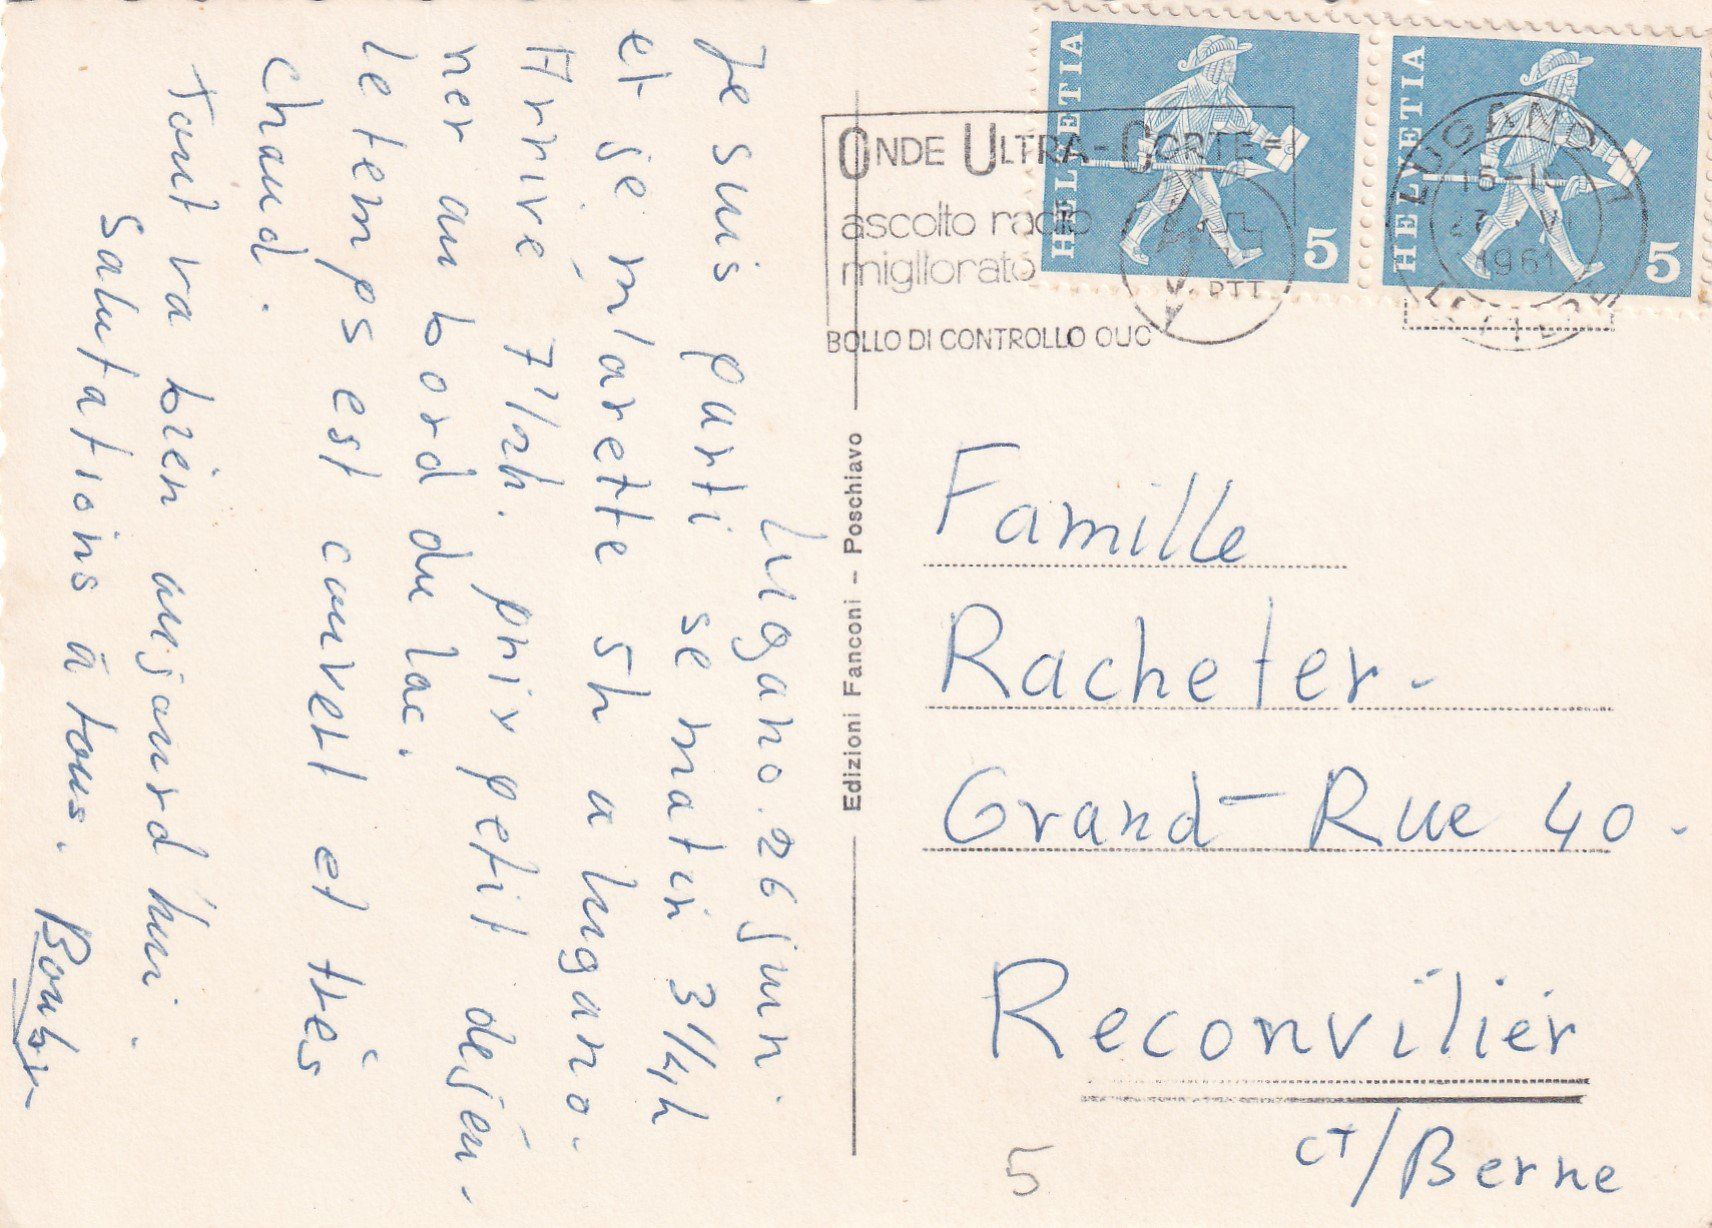 Lugano. 26 juin.
Je suis parti se matin 3 1/4 h
et je m'arete 5h a Lugano.
Arrivé 7 1/2 h. prix petit déjeu-
ner au bord du lac.
le temps est couvert et très
chaud.
Tout va bien aujourd'hui.
Salutations à tous.
Edizioni Fanconi - Poschiavo
HELVETIA 5
HELVETIA 5
ONDE ULTRA-CORTE=
ascolto radio
migliorato
BOLLO DI CONTROLLO OUC
PTT
LUGANO 1
1961
Famille
Racheter-
Grand-Rue 40.
Reconvilier
CT/Berne
5